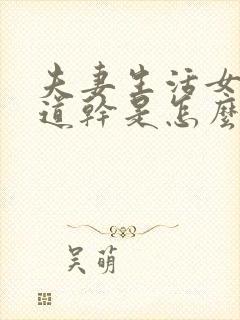 夫妻生活女
道幹是怎麼
吴萌